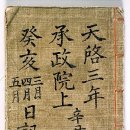 天啓三年
承政院上
癸亥
三月
四月
五月
日記